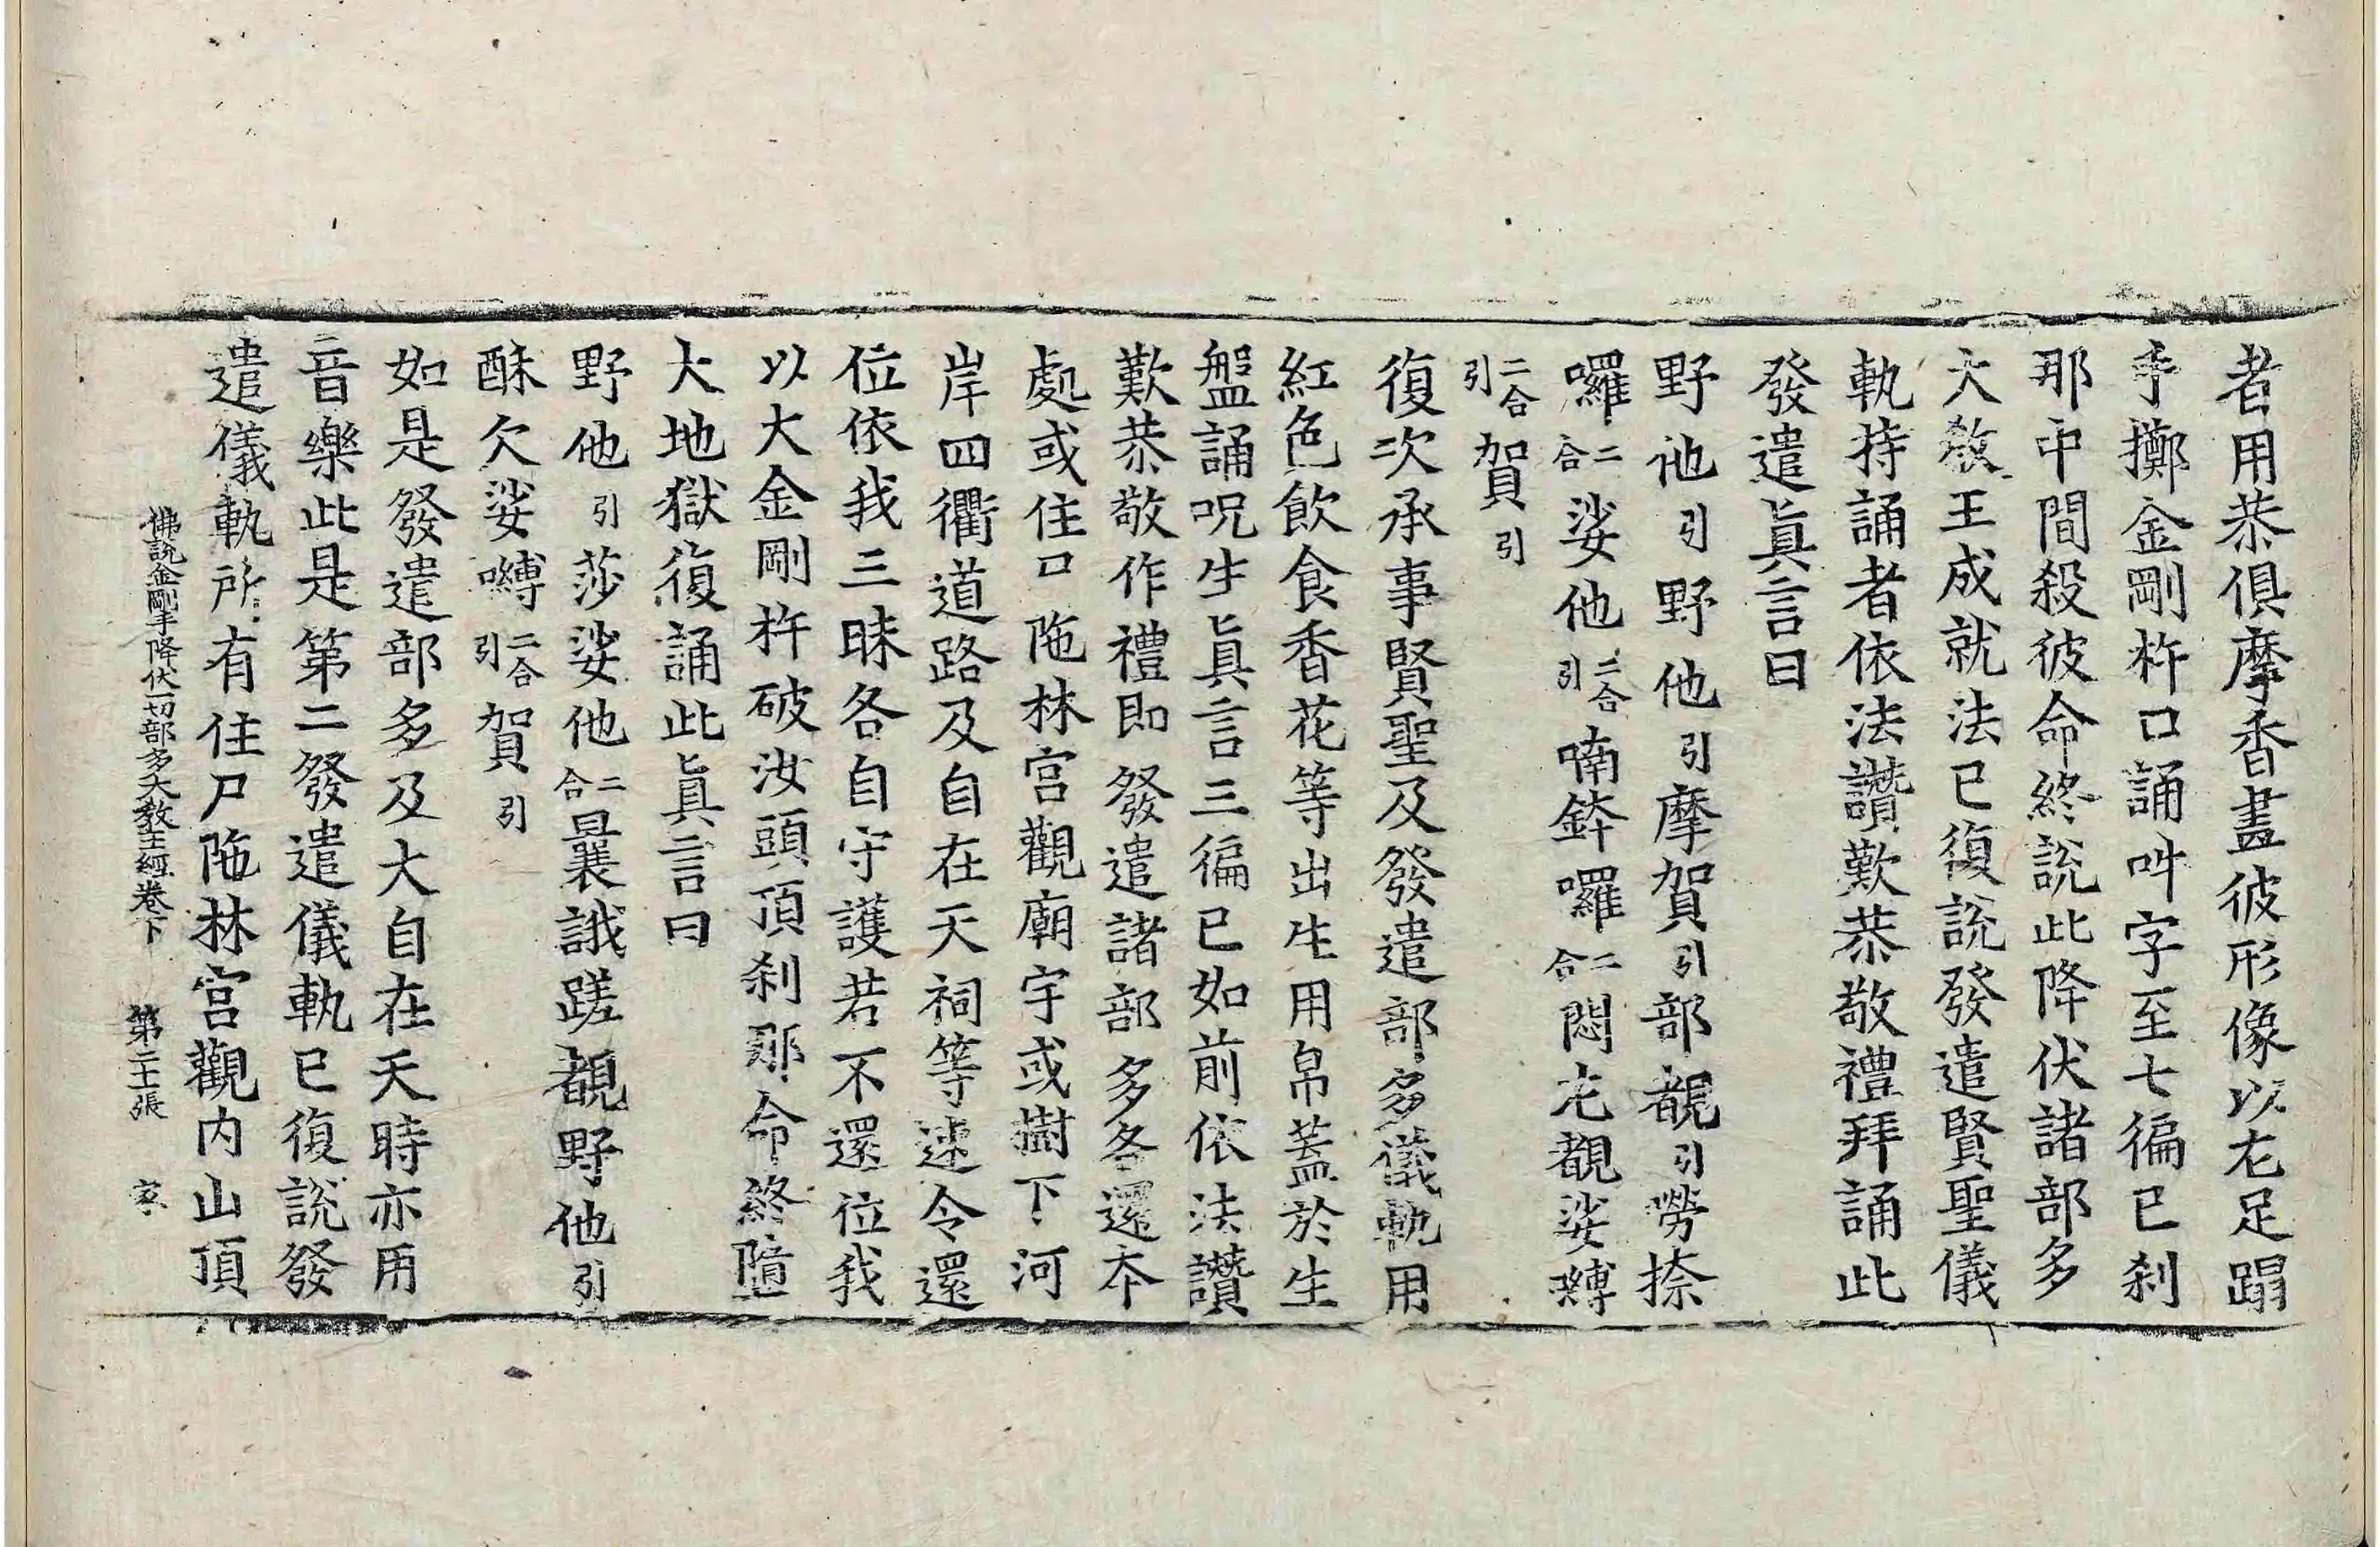 者用恭俱摩香畫彼形像以左足蹋
手擲金剛杵口誦吽字至七徧已刹
那中間殺彼命終說此降伏諸部多
大教王成就法已復說發遣賢聖儀
軌持誦者依法讚歎恭敬禮拜誦此
發遣眞言曰
野他引野他引摩賀引部覩引嘮捺
囉二合娑他二合引喃鉢囉二合悶左覩娑嚩
二合引賀引
復次承事賢聖及發遣部多儀軌用
紅色飲食香花等出生用帛蓋於生
盤誦呪生眞言三徧已如前依法讚
歎恭敬作禮即發遣諸部多各還本
處或住口陁林宫觀廟宇或樹下河
岸四衢道路及自在天祠等速令還
位依我三昧各自守護若不還位我
以大金剛杵破汝頭頂刹那命終墮
大地獄復誦此眞言曰
野他引莎娑他二合曩誐蹉覩野他引
酥欠娑嚩二合引賀引
如是發遣部多及大自在天時亦用
音樂此是第二發遣儀軌已復說發
遣儀軌所有住尸陁林宫觀内山頂
佛說金剛手降伏一切部多大教王經卷下 第二十張